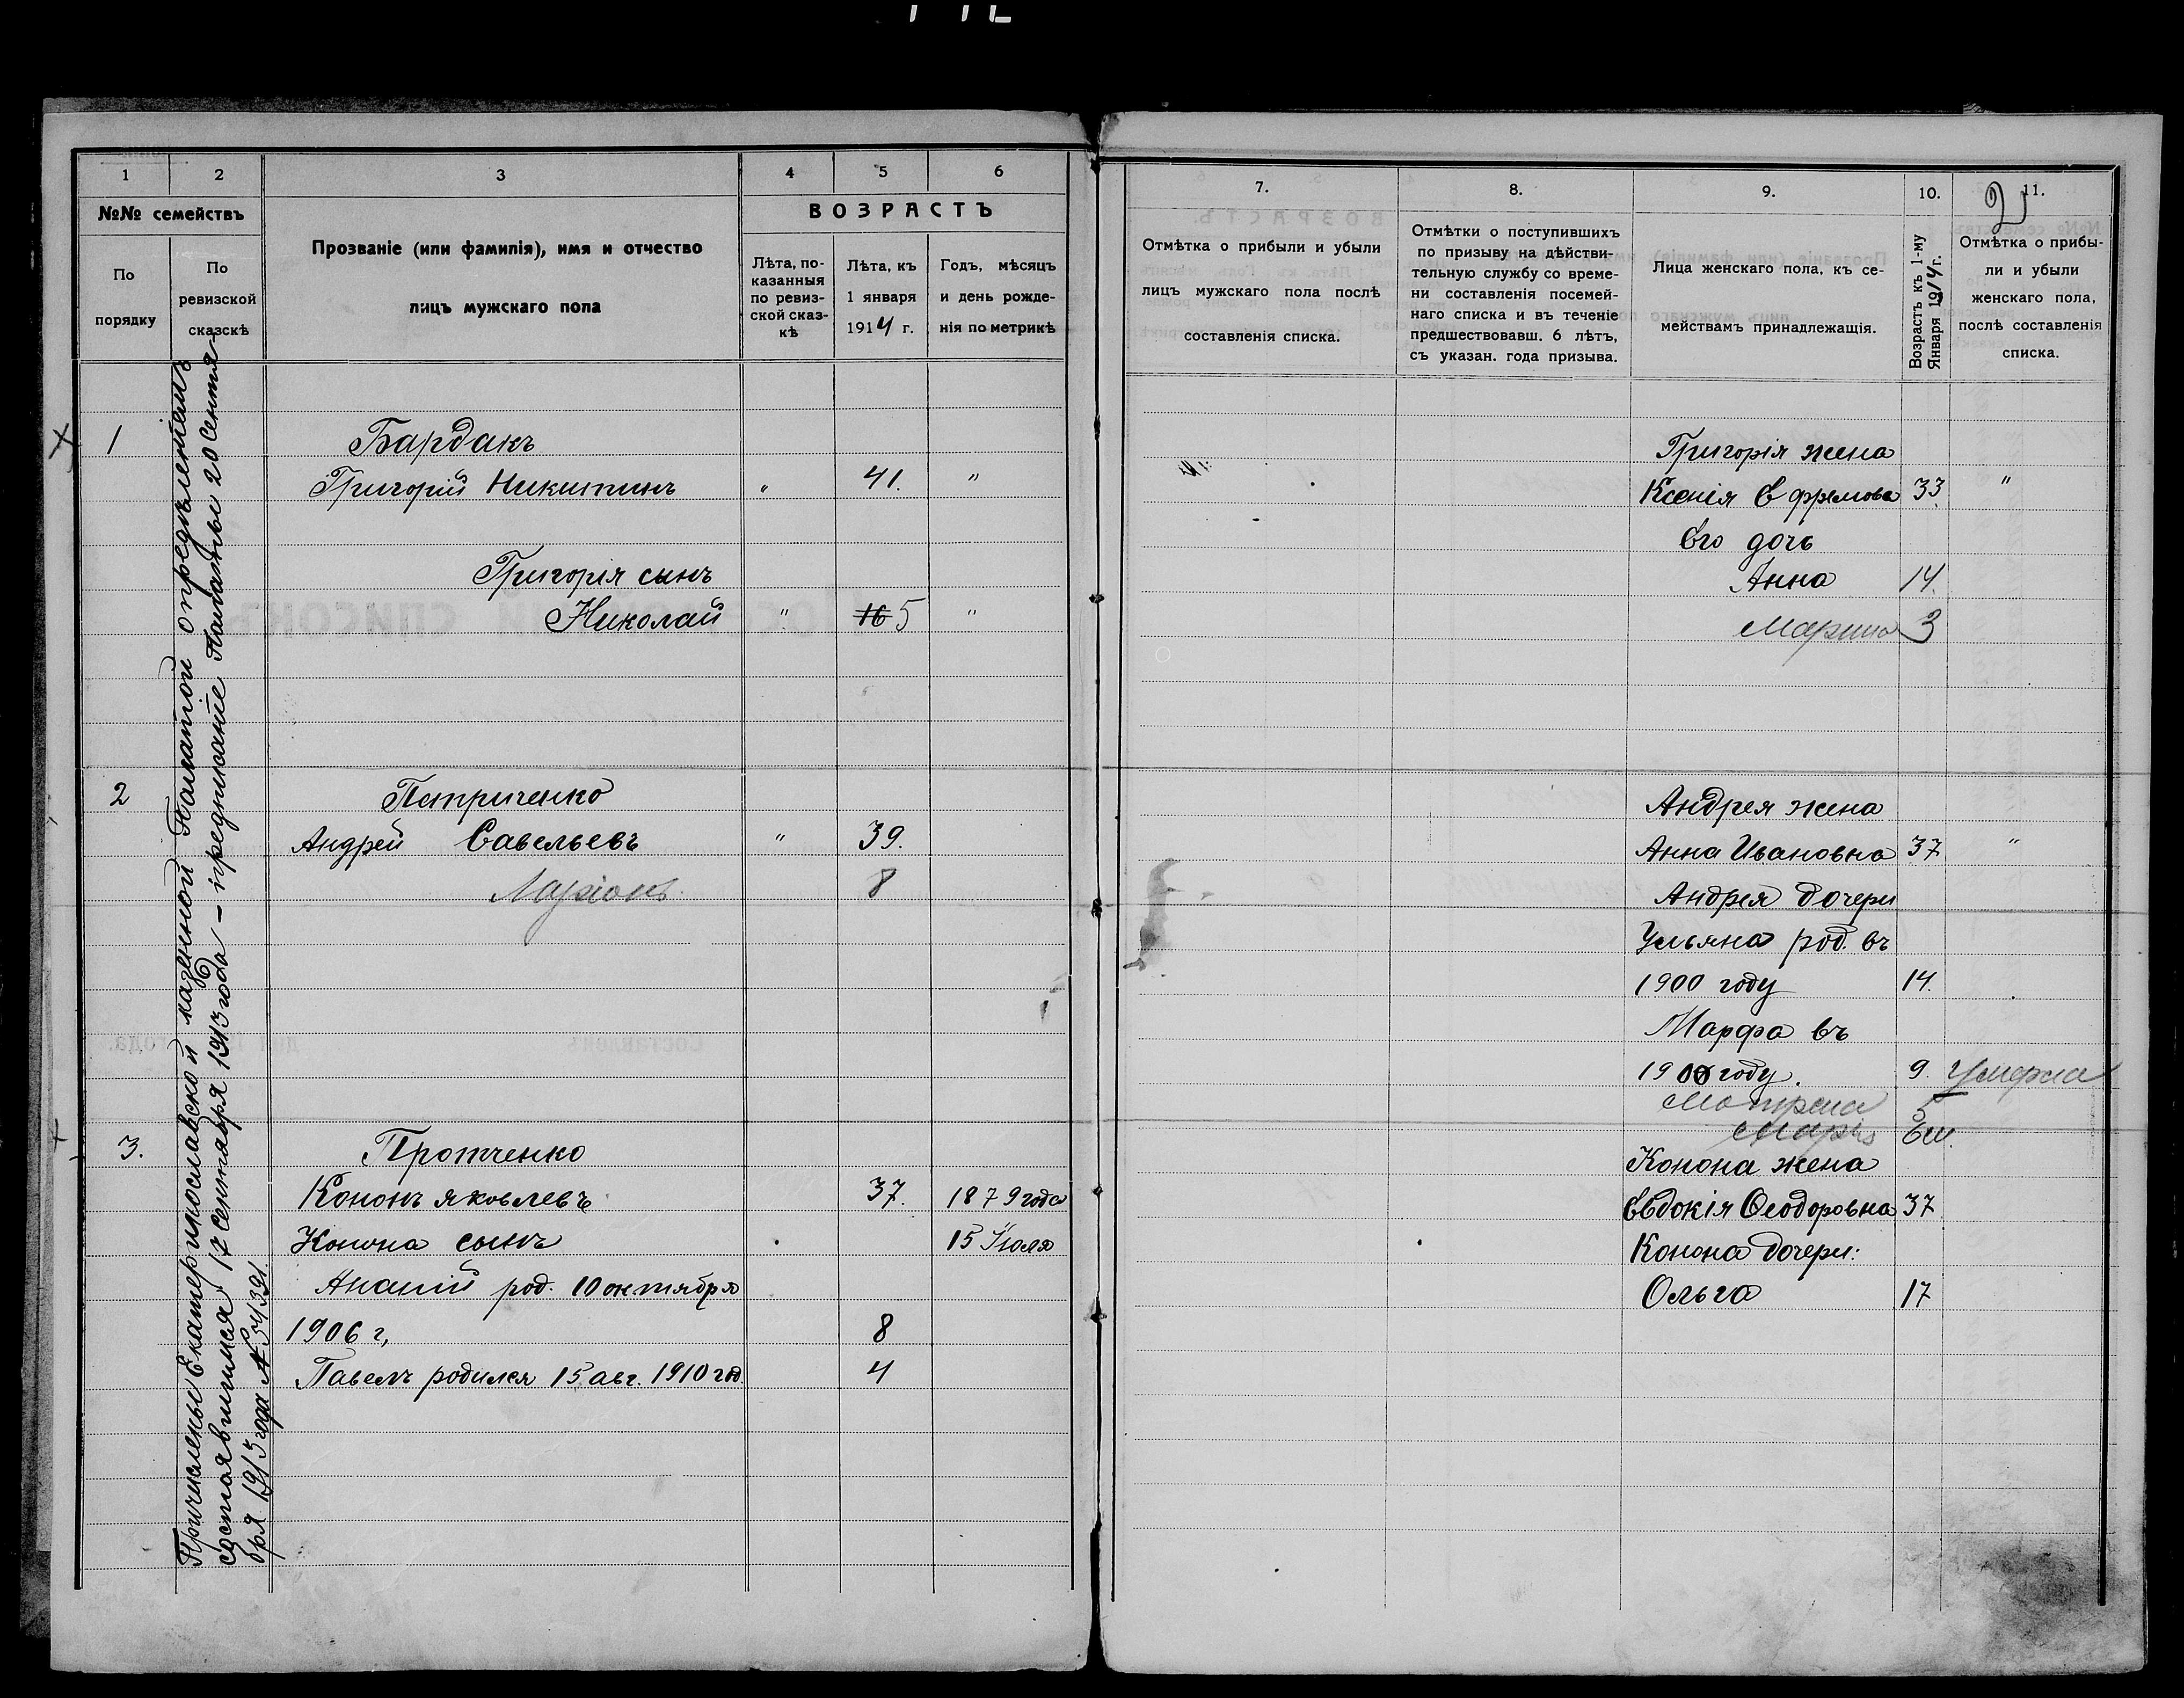 1
2
3
4
5
6
№№ семействъ
Прозваніе (или фамилія), имя и отчество
лицъ мужскаго пола
ВОЗРАСТЪ
По
порядку
По
ревизской
сказскѣ
Лѣта, по-
казанныя
по ревиз-
ской сказ-
кѣ
Лѣта, къ
1 января
1914 г.
Годъ, мѣсяцъ
и день рожде-
нія по метрикѣ
Причислены Екатеринославской казенной Палатой опредѣленіемъ
состоявшимся 17 сентября 1913 года – предписаніе Палаты 20 сентя-
бря 1913 года № 54391.
1
Бардакъ
Григорій Никитинъ " 41. "
Григорія сынъ
Николай " 16 5 "
2
Петриченко
Андрей Савельевъ " 39.
Ларіонъ 8
3.
Протченко
Кононъ Яковлевъ 37. 1879 года
Конона сынъ 15 Іюля
Ананій род. 10 октября
1906 г, 8
Павелъ родился 15 авг. 1910 год. 4
7.
8.
9.
10.
11.
2
Отмѣтка о прибыли и убыли
лицъ мужскаго пола послѣ
составленія списка.
Отмѣтки о поступившихъ
по призыву на дѣйстви-
тельную службу со време-
ни составленія посемей-
наго списка и въ теченіе
предшествовавш. 6 лѣтъ,
съ указан. года призыва.
Лица женскаго пола, къ се-
мействамъ принадлежащія.
Возрастъ къ 1-му
Января 1914 г.
Отмѣтка о прибы-
ли и убыли
женскаго пола,
послѣ составленія
списка.
Григорія жена
Ксенія Ефремова 33. "
Его дочь
Анна 14.
Марина 3
Андрея жена
Анна Ивановна 37 "
Андрея дочери
Ульяна род. въ
1900 году 14.
Марфа въ
1900 году. 9. Умерла
Мотрена 5
Марія
Конона жена
Евдокія Ѳеодоровна 37
Конона дочери:
Ольга 17